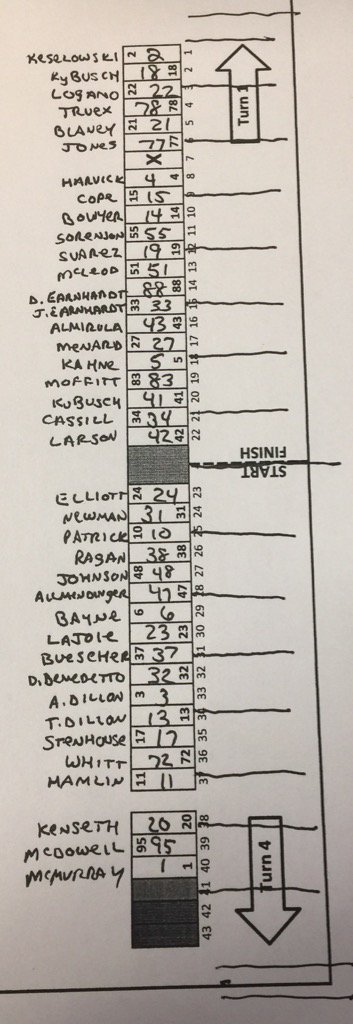 KESELOWSKI 2 2 1
KYBUSCH 18 18 2
LOGANO 22 22 3
TRUEX 78 78 4
BLANEY 21 21 5
JONES 77 77 6
X 7
HARVICK 4 4 8
COPE 15 15 9
BOWYER 14 14 10
SORENSON 55 55 11
SUAREZ 19 19 12
McLEOD 51 51 13
D. EARNHARDT 88 88 14
J. EARNHARDT 33 33 15
ALMIROLA 43 43 16
MENARD 27 27 17
KAHNE 5 5 18
MOFFITT 83 83 19
KUBUSCH 41 41 20
CASSILL 34 34 21
LARSON 42 42 22
START
FINISH
ELLIOTT 24 24 23
NEWMAN 31 31 24
PATRICK 10 10 25
RAGAN 38 38 26
JOHNSON 48 48 27
ALLMENDINGER 47 47 28
BAYNE 6 6 29
LAJOIE 23 23 30
BUESCHER 37 37 31
D. DiBENEDETTO 32 32 32
A. DILLON 3 3 33
T. DILLON 13 13 34
STENHOUSE 17 17 35
WHITT 72 72 36
HAMLIN 11 11 37
KENSETH 20 20 38
McDOWELL 95 95 39
McMURRAY 1 1 40
41
42
43
Turn 1
Turn 4